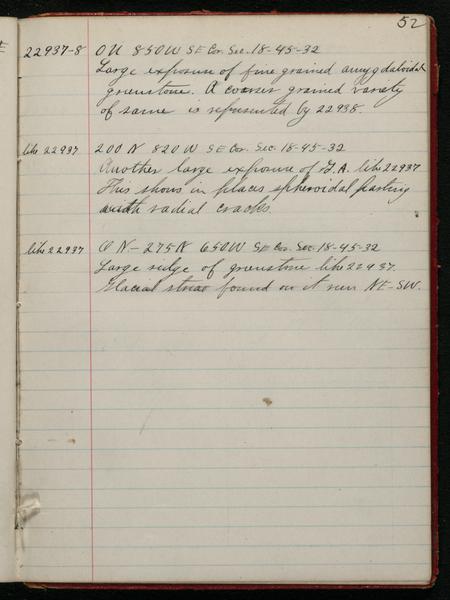 52
22937-8 0N 850W SE Cor. Sec. 18-45-32
Large exposure of fine grained amygdaloidal
greenstone. A coarser grained variety
of same is represented by 22938.
like 22937 200 N 820 W SE Cor. Sec. 18-45-32
Another large exposure of G.A. like 22937
This shows in places spheroidal parting
with radial cracks.
like 22937 0 N-275N 650W SE Cor. Sec. 18-45-32
Large ridge of greenstone like 22937.
Glacial striae found on it run NE-SW.